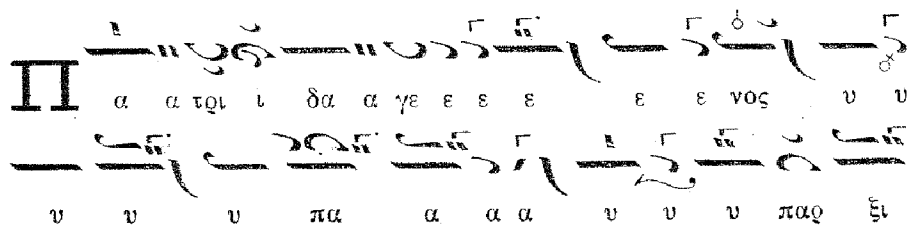 Π α α τρι ι δα α γε ε ε ε ε ε νος υ υ
υ υ υ πα α α α υ υ υ παρ ξι